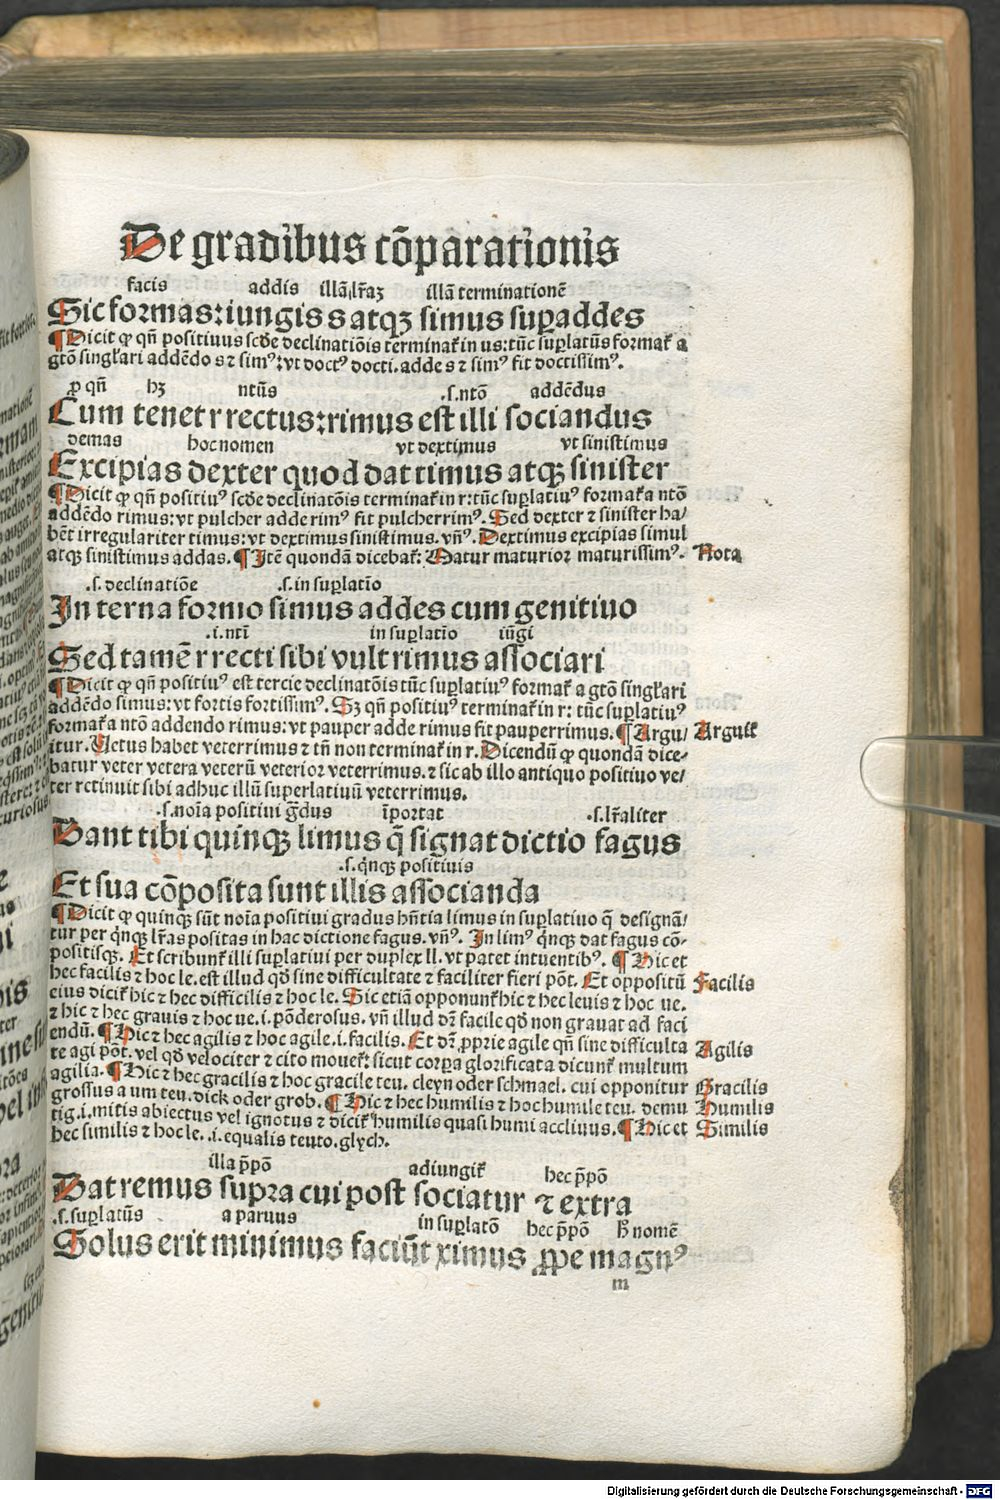 De gradibus cõparationis
facis addis illã lr̃aʒ illã terminationẽ
Sic formas: iungis s atqʒ simus suꝑaddes
¶ Dicit ꝙ qñ positiuus scðe declinatiõis terminať in us: tũc suꝑlatũs formať a
gtõ singl'ari addẽdo s ⁊ simꝰ: vt doctꝰ docti. adde s ⁊ simꝰ fit doctissimꝰ.
ꝓ qñ hʒ ntũs .s. ntõ addẽdus
Cum tenet r rectus: rimus est illi sociandus
demas hoc nomen vt dextimus vt sinistimus
Excipias dexter quod dat timus atqʒ sinister
¶ Dicit ꝙ qñ positiuꝰ scðe declinatõis terminať in r: tũc suꝑlatiuꝰ formať a ntõ
addẽdo rimus: vt pulcher adde rimꝰ fit pulcherrimꝰ. Sed dexter ⁊ sinister ha/
bẽt irregulariter timus: vt dextimus sinistimus. vñꝰ. Dextimus excipias simul
atqʒ sinistimus addas. ¶ Itẽ quondã dicebať: Matur maturior maturissimꝰ. Nota
.s. declinatiõe .s. in suꝑlatio
In terna formo simus addes cum genitiuo
.i. ntĩ in suꝑlatio iũgi
Sed tamẽ r recti sibi vult rimus associari
¶ Dicit ꝙ qñ positiuꝰ est tercie declinatõis tũc suꝑlatiuꝰ formať a gtõ singl'ari
addẽdo simus: vt fortis fortissimꝰ. Sʒ qñ positiuꝰ terminať in r: tũc suꝑlatiuꝰ
formať a ntõ addendo rimus: vt pauper adde rimus fit pauperrimus. ¶ Argu/ Arguiť
itur. Vetus habet veterrimus ⁊ tñ non terminať in r. Dicendũ ꝙ quondã dice-
batur veter vetera veterũ veterior veterrimus. ⁊ sic ab illo antiquo positiuo ve/
ter retinuit sibi adhuc illũ superlatiuũ veterrimus.
.s. noĩa positiui g̃dus ĩportat .s. lr̃aliter
Dant tibi quinqʒ limus q̃ signat dictio fagus
.s. q̃nqʒ positiuis
Et sua cõposita sunt illis associanda
¶ Dicit ꝙ quinqʒ sũt noĩa positiui gradus hñtia limus in suꝑlatiuo q̃ designã/
tur per q̃nqʒ lr̃as positas in hac dictione fagus. vñꝰ. In limꝰ q̃nqʒ dat fagus cõ-
positisqʒ. Et scribunť illi suꝑlatiui per duplex ll. vt patet intuentibꝰ. ¶ Hic et
hec facilis ⁊ hoc le. est illud qð sine difficultate ⁊ faciliter fieri põt. Et oppositũ Facilis
eius diciť hic ⁊ hec difficilis ⁊ hoc le. Sic etiã opponunť hic ⁊ hec leuis ⁊ hoc ue.
⁊ hic ⁊ hec grauis ⁊ hoc ue. i. põderosus. vñ illud dř facile qð non grauat ad faci
endũ. ¶ Hic ⁊ hec agilis ⁊ hoc agile. i. facilis. Et dř ꝓprie agile qñ sine difficulta Agilis
te agi põt. vel qð velociter ⁊ cito moueť: sicut corꝑa glorificata dicunť multum
agilia. ¶ Hic ⁊ hec gracilis ⁊ hoc gracile teu. cleyn oder schmael. cui opponitur Gracilis
grossus a um teu. dick oder grob. ¶ Hic ⁊ hec humilis ⁊ hoc humile teu. demu Humilis
tig. i. mitis abiectus vel ignotus ⁊ diciť humilis quasi humi accliuus. ¶ Hic et Similis
hec similis ⁊ hoc le. .i. equalis teuto. glych.
illa p̃põ adiungiť hec p̃põ
Dat remus supra cui post sociatur ⁊ extra
.s. suꝑlatũs a paruus in suꝑlatõ hec p̃põ h̃ nomẽ
Solus erit minimus faciũt ximus ꝓpe magnꝰ
m
Digitalisierung gefördert durch die Deutsche Forschungsgemeinschaft - DFG